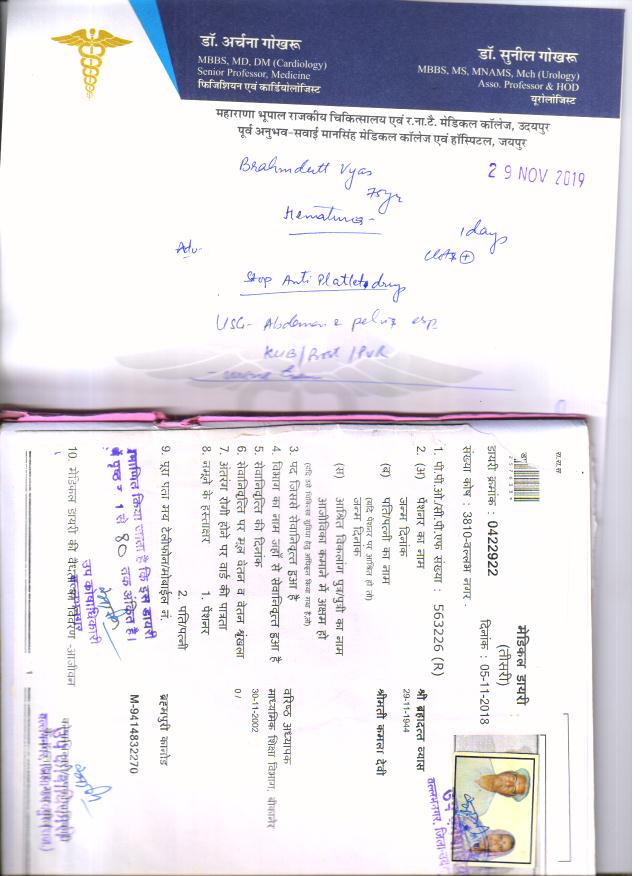 डॉ. अर्चना गोखरू
MBBS, MD, DM (Cardiology)
Senior Professor, Medicine
फिजिशियन एवं कार्डियोलोजिस्ट
डॉ. सुनील गोखरू
MBBS, MS, MNAMS, Mch (Urology)
Asso. Professor & HOD
यूरोलॉजिस्ट
महाराणा भूपाल राजकीय चिकित्सालय एवं र.ना.टै. मेडिकल कॉलेज, उदयपुर
पूर्व अनुभव-सवाई मानसिंह मेडिकल कॉलेज एवं हॉस्पिटल, जयपुर
29 NOV 2019
Brahmdutt Vyas
75yr
Hematuria
1 days
Adv-
Stop Anti Platlet drug
USG- Abdomen & pelvis esp
KUB/Prost/PVR
मेडिकल डायरी
(तीसरी)
डायरी क्रमांक : 0422922
दिनांक : 05-11-2018
संख्या कोष : 3810-वल्लभ नगर
1. पी.पी.ओ/सी.पी.एफ संख्या : 563226 (R)
2. (अ) पेंशनर का नाम श्री ब्रह्मदत्त व्यास
जन्म दिनांक 29-11-1944
(ब) पति/पत्नी का नाम श्रीमती कमला देवी
(यदि पेंशनर पर आश्रित हो तो)
जन्म दिनांक
(स) आश्रित विकलांग पुत्र/पुत्री का नाम
आजीविका कमाने में अक्षम हो
3. पद जिससे सेवानिवृत्त हुआ है वरिष्ठ अध्यापक
4. विभाग का नाम जहाँ से सेवानिवृत्त हुआ है माध्यमिक शिक्षा विभाग, बीकानेर
5. सेवानिवृत्ति की दिनांक 30-11-2002
6. सेवानिवृत्ति पर मूल वेतन व वेतन श्रृंखला 0 /
7. अंतरंग रोगी होने पर वार्ड की पात्रता
8. नमूने के हस्ताक्षर 1. पेंशनर
2. पति/पत्नी
9. पूरा पता मय टेलीफोन/मोबाईल नं. ब्रह्मपुरी कानोड
M-9414832270
प्रमाणित किया जाता है कि इस डायरी
में पृष्ठ 1 से 80 तक अंकित है।
उप कोषाधिकारी
10. मेडिकल डायरी की वैधता का विवरण -आजीवन
1